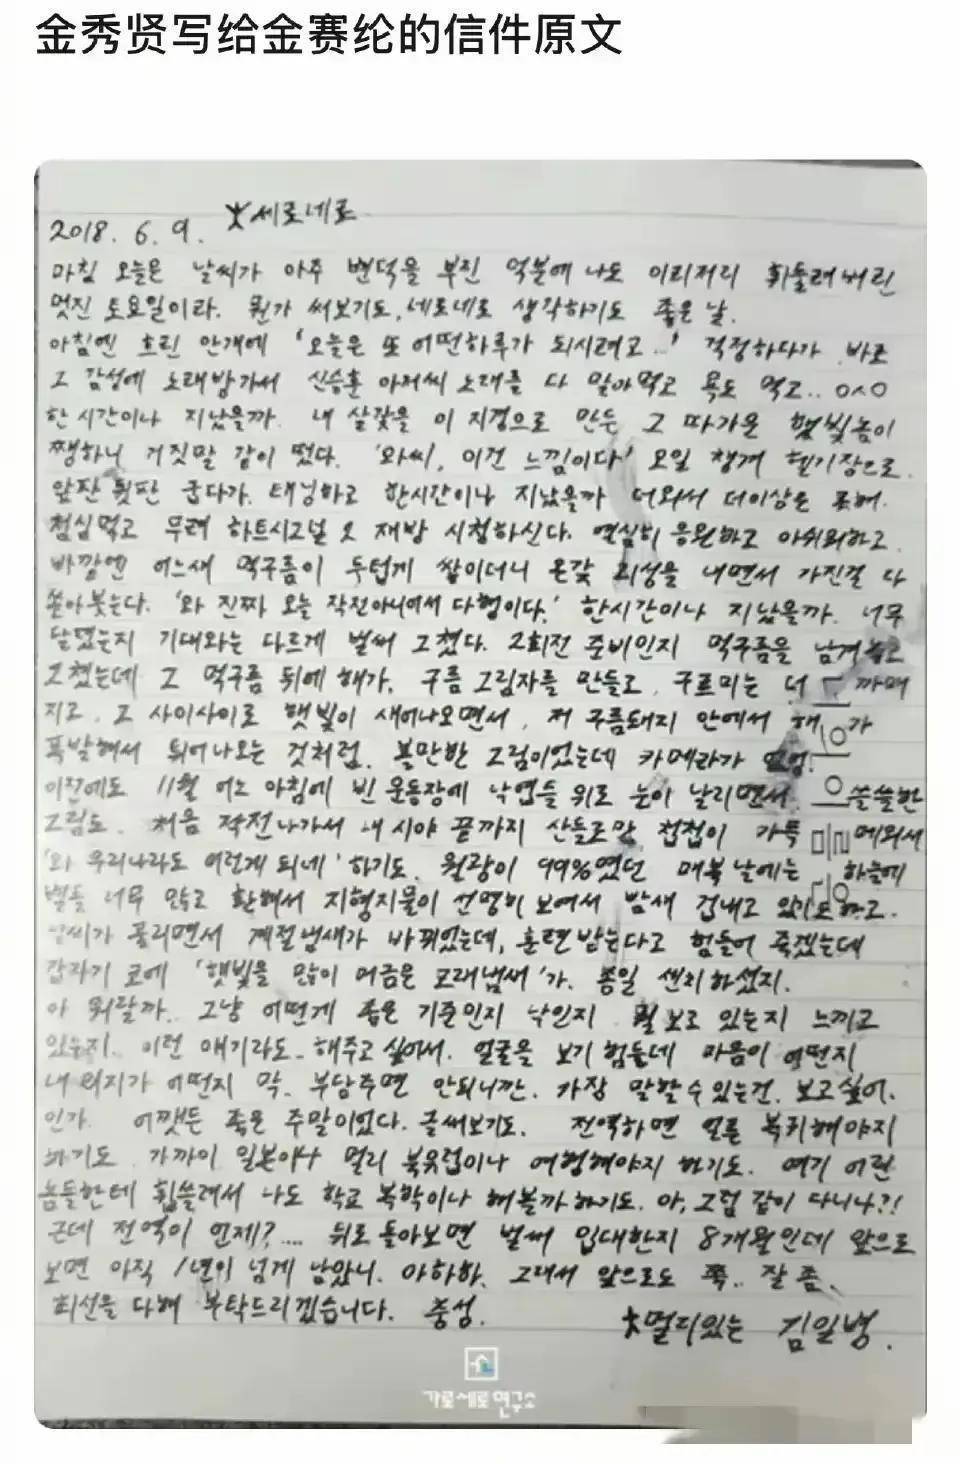 金秀贤写给金赛纶的信件原文
2018. 6. 9. 세로네로
마침 오늘은 날씨가 아주 변덕을 부린 덕분에 나도 이리저리 휘둘려버린
멋진 토요일이라. 뭔가 써보기도, 세로네로 생각하기도 좋은 날.
아침엔 흐린 안개에 '오늘은 또 어떤하루가 되시려고...' 걱정하다가 바로
그 감성에 노래방가서 신승훈 아저씨 노래를 다 말아먹고 욕도 먹고.. ㅇㅅㅇ
한시간이나 지났을까. 내 살갗을 이 지경으로 만든 그 따가운 햇빛놈이
쨍하니 거짓말 같이 떴다. '와씨, 이건 느낌이다!' 오일 챙겨 헬기장으로.
앞판 뒷판 굽다가. 태닝하고 한시간이나 지났을까 더와서 더이상은 못해.
점심먹고 무려 하트시그널 2 재방 시청하신다. 열심히 응원하고 아쉬워하고.
바깥엔 어느새 먹구름이 두텁게 쌓이더니 온갖 괴성을 내면서 가진걸 다
쏟아붓는다. '와 진짜 오늘 작전아니어서 다행이다.' 한시간이나 지났을까. 너무
달랬는지 기대와는 다르게 벌써 그쳤다. 2회전 준비인지 먹구름을 남겨놓고
그쳤는데 그 먹구름 뒤에 해가. 구름그림자를 만들고. 구르미는 더 까매
지고. 그 사이사이로 햇빛이 새어나오면서. 저 구름돼지 안에서 해가
폭발해서 튀어나오는 것처럼. 볼만한 그림이었는데 카메라가 없엉.
이전에도 11월 어느 아침에 빈 운동장에 낙엽들 위로 눈이 날리면서. 쓸쓸한
그림도. 처음 작전나가서 내 시야 끝까지 산들로만 첩첩이 가득 메워서
'와 우리나라도 이런게 되네' 하기도. 월광이 99%였던 매복날에는 하늘에
별들 너무 많고 환해서 지형지물이 선명히 보여서 밤새 겁내고 있기도 하고.
날씨가 풀리면서 계절냄새가 바뀌었는데, 훈련받는다고 힘들어 죽겠는데
갑자기 코에 '햇빛을 많이 머금은 모래냄새'가. 종일 센치하셨지.
아 뭐랄까. 그냥 어떤게 좋은 기준인지 낙인지 뭘 보고 있는지 느끼고
있는지. 이런 얘기라도.. 해주고 싶어서. 얼굴을 보기 힘들데 마음이 어떤지
내 의지가 어떤지 막. 부담주면 안되니깐. 가장 말할수있는건. 보고싶어.
인가. 어쨋든 좋은 주말이었다. 글써보기도. 전역하면 얼른 복귀해야지
하기도. 가까이 일본이나 멀리 북유럽이나 여행해야지 하기도. 여기 어린
놈들한테 휩쓸려서 나도 학교 복학이나 해볼까하기도. 아, 그럼 같이 다니나?!
근데 전역이 언제?.... 뒤로 돌아보면 벌써 입대한지 8개월인데 앞으로
보면 아직 1년이 넘게 남았니. 아하하. 그래서 앞으로도 쭉.. 잘 좀.
최선을 다해 부탁드리겠습니다. 충성.
멀리있는 김일병.
가로세로연구소